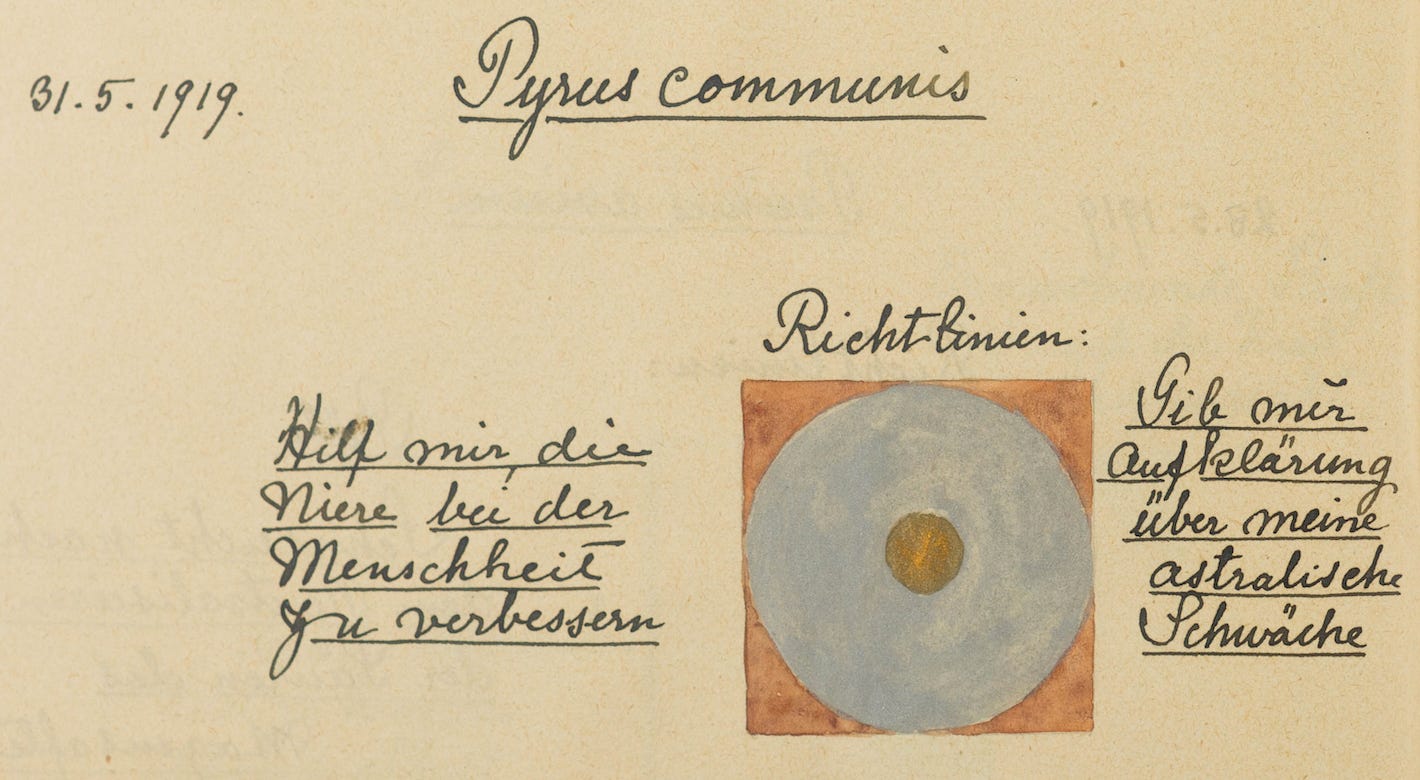 31.5.1919.
Pyrus communis
Richtlinien:
Hilf mir, die
Niere bei der
Menschheit
zu verbessern
Gib mir
Aufklärung
über meine
astralische
Schwäche